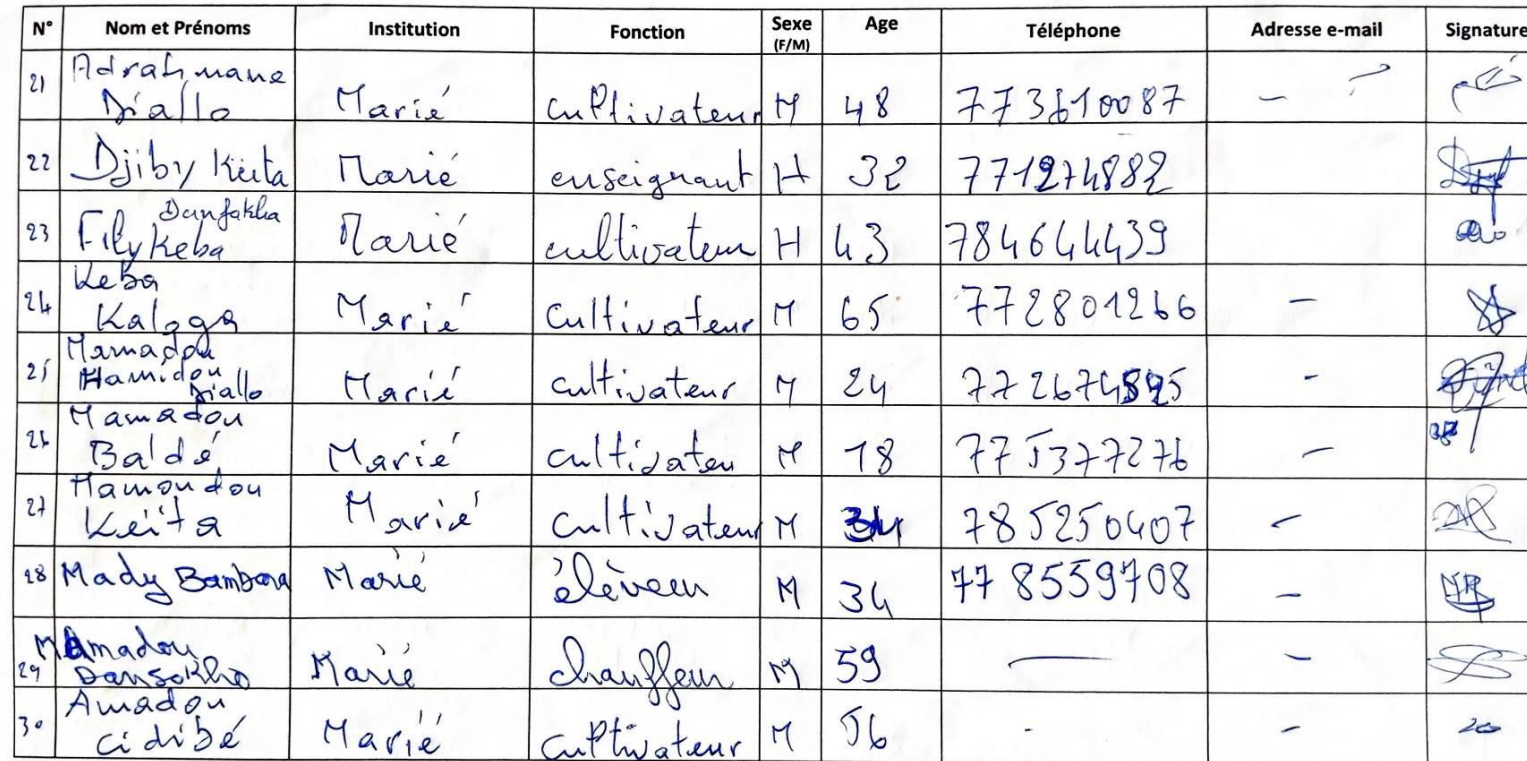 N° Nom et Prénoms Institution Fonction Sexe (F/M) Age Téléphone Adresse e-mail Signature
21 Adrahmane Diallo Marié cultivateur M 48 773610087 -
22 Djiby Keita Marié enseignant H 32 771274882
23 Fily Keba Danfakha Marié cultivateur H 43 784644439
24 Keba Kaloga Marié Cultivateur M 65 772801266 -
25 Mamadou Hamidou Diallo Marié cultivateur M 24 -
26 Mamadou Baldé Marié cultivateu M 18 775377276 -
27 Mamoudou Keita Marié Cultivateur M 34 785250407 -
28 Mady Bambara Marié élèveur M 34 778559708 -
29 Mamadou Dansokho Marié chauffeur M 59 - -
30 Amadou cidibé Marié cultivateur M 56 - -